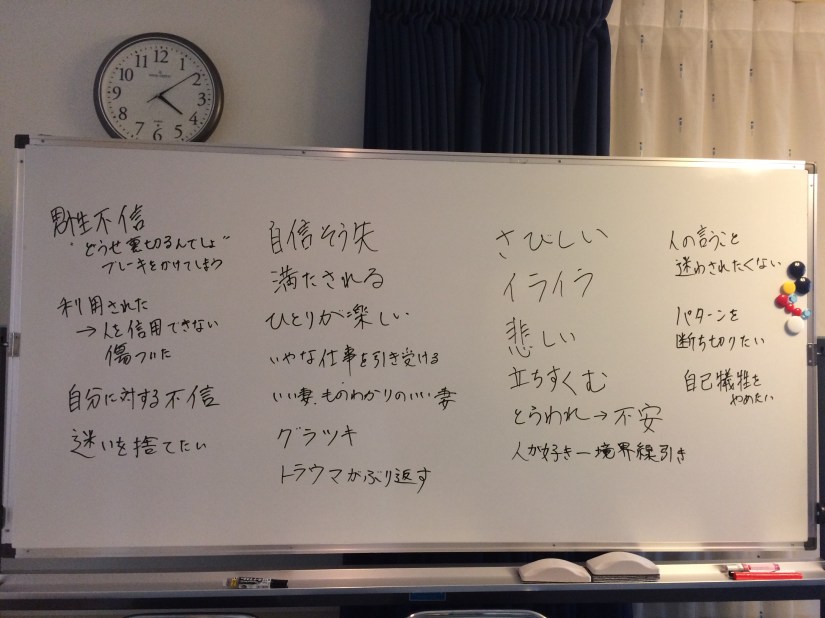 男性不信
"どうせ裏切るんでしょ"
ブレーキをかけてしまう
利用された
→人を信用できない
傷ついた
自分に対する不信
迷いを捨てたい
自信そう失
満たされる
ひとりが楽しい
いやな仕事を引き受ける
いい妻、ものわかりのいい妻
グラツキ
トラウマがぶり返す
さびしい
イライラ
悲しい
立ちすくむ
とらわれ→不安
人が好き―境界線引き
人の言うこと
迷わされたくない
パターンを
断ち切りたい
自己犠牲を
やめたい
12
1
2
3
4
5
6
7
8
9
10
11